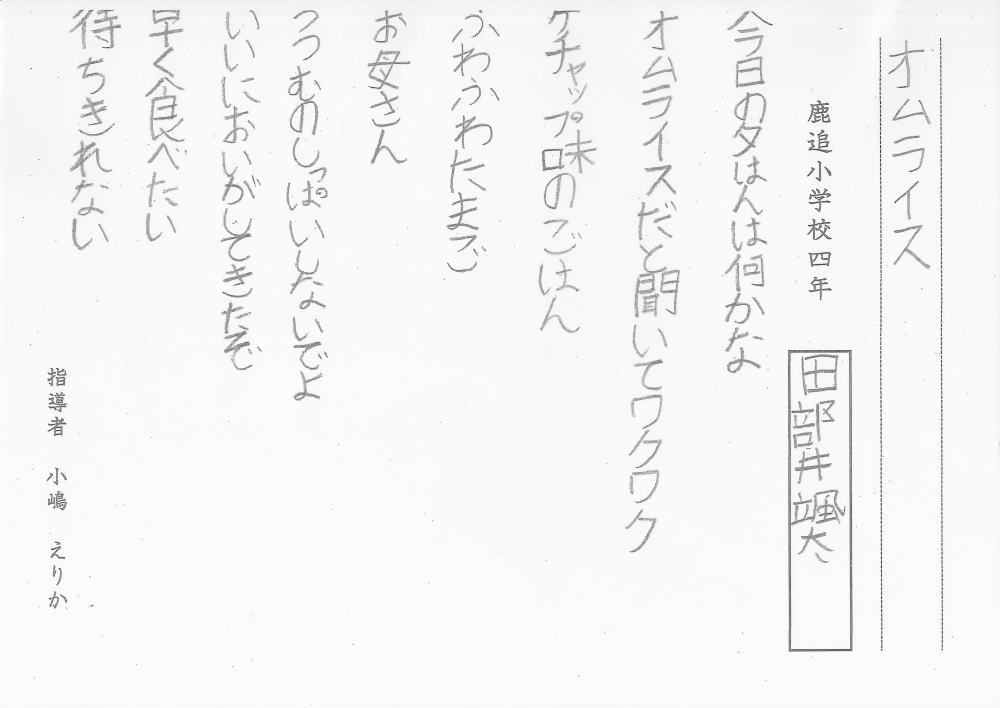 オムライス
鹿追小学校四年
田部井颯太
今日の夕はんは何かな
オムライスだと聞いてワクワク
ケチャップ味のごはん
ふわふわたまご
お母さん
つつむのしっぱいしないでよ
いいにおいがしてきたぞ
早く食べたい
待ちきれない
指導者 小嶋 えりか